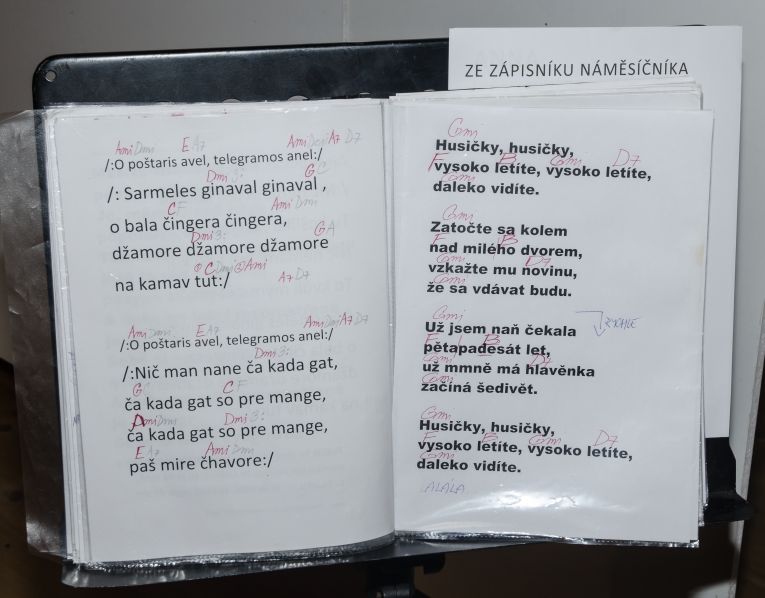 ZE ZÁPISNÍKU NÁMĚSÍČNÍKA
Ami Dmi E A7 Ami Dmi A7 D7
/:O poštaris avel, telegramos anel:/
Dmi 3: G C
/: Sarmeles ginaval ginaval ,
C F Ami Dmi
o bala čingera čingera,
Dmi 3: G A
džamore džamore džamore
C Dmi Ami
na kamav tut:/ A7 D7
Ami Dmi E A7 Ami Dmi A7 D7
/:O poštaris avel, telegramos anel:/
Dmi 3:
/:Nič man nane ča kada gat,
G C C F
ča kada gat so pre mange,
Ami Dmi Dmi 3:
ča kada gat so pre mange,
E A7 Ami Dmi
paš mire čhavore:/
Gmi
Husičky, husičky,
F B Gmi D7
vysoko letíte, vysoko letíte,
Gmi
daleko vidíte.
Gmi
Zatočte sa kolem
F B
nad milého dvorem,
Gmi D7
vzkažte mu novinu,
Gmi
že sa vdávat budu.
Gmi
Už jsem naň čekala RYCHLE
F B
pětapadesát let,
Gmi D7
už mmně má hlavěnka
Gmi
začíná šedivět.
Gmi
Husičky, husičky,
F B Gmi D7
vysoko letíte, vysoko letíte,
Gmi
daleko vidíte.
ALÁLA